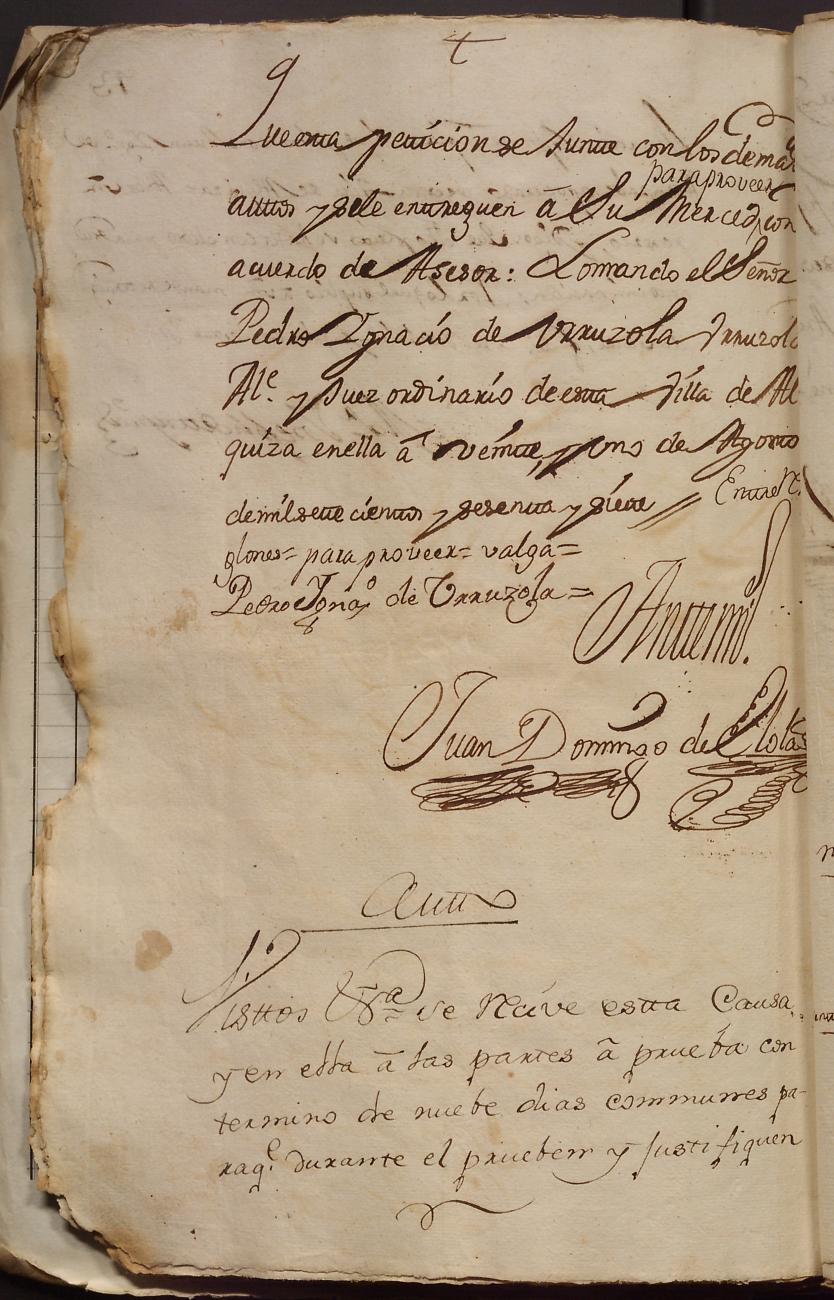 Que esta peticion se Juntte con los demas
para proveer
auttos y se le enttreguen â Su Merced con
acuerdo de Asesor: Lo mando el Señor
Pedro Ygnacio de Vrruzola Vrruzola
Ale. y Juez ordinario de estta Villa de Al
quiza en ella â veintte, y uno de Agosto
de mil sette cienttos y sesentta y siette // Enttre R.
glones= para proveer= valga=
Pedro Ignaº de Vrruzola=
Anttemi.
Juan Domingo de
Autto
Visttos &ra se Recive estta Causa,
y en ella â las partes â prueba con
termino de nuebe dias communes pa-
raqe. durante el prueben y Justifiquen